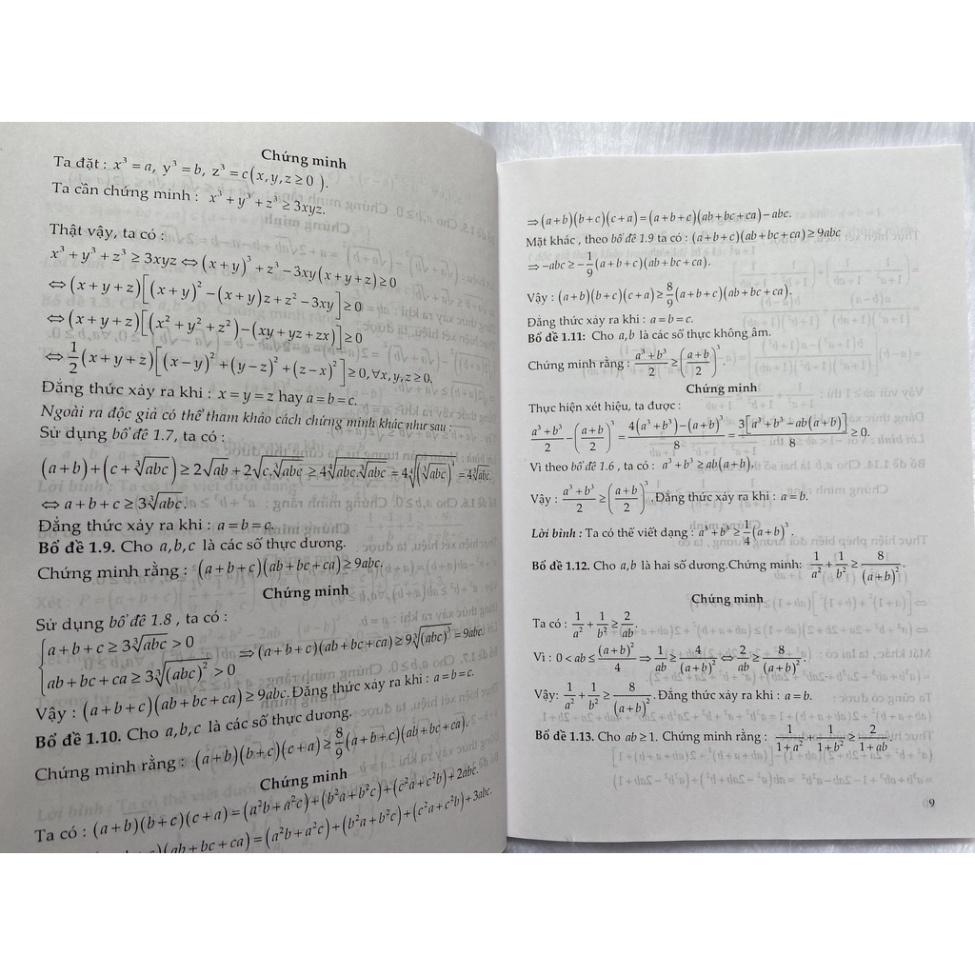 Chứng minh
Ta đặt : x³ = a, y³ = b, z³ = c(x,y,z ≥ 0 ).
Ta cần chứng minh : x³ + y³ + z³ ≥ 3xyz.
Thật vậy, ta có :
x³ + y³ + z³ ≥ 3xyz ⇔ (x + y)³ + z³ − 3xy(x + y + z) ≥ 0
⇔ (x + y + z)[(x + y)² − (x + y)z + z² − 3xy] ≥ 0
⇔ (x + y + z)[(x² + y² + z²) − (xy + yz + zx)] ≥ 0
⇔ 1/2 (x + y + z)[(x − y)² + (y − z)² + (z − x)²] ≥ 0, ∀x,y,z ≥ 0.
Đẳng thức xảy ra khi : x = y = z hay a = b = c.
Ngoài ra độc giả có thể tham khảo cách chứng minh khác như sau :
Sử dụng bổ đề 1.7, ta có :
(a + b) + (c + ∛abc) ≥ 2√ab + 2√c.∛abc ≥ 4∜abc.∛abc = 4∜(∛abc)⁴ = 4∛abc.
⇔ a + b + c ≥ 3∛abc.
Đẳng thức xảy ra khi : a = b = c.
Bổ đề 1.9. Cho a,b,c là các số thực dương.
Chứng minh rằng : (a + b + c)(ab + bc + ca) ≥ 9abc.
Chứng minh
Sử dụng bổ đề 1.8 , ta có :
{ a + b + c ≥ 3∛abc > 0
ab + bc + ca ≥ 3∛(abc)² > 0 ⇒ (a + b + c)(ab + bc + ca) ≥ 9∛(abc)³ = 9abc.
Vậy : (a + b + c)(ab + bc + ca) ≥ 9abc.Đẳng thức xảy ra khi : a = b = c.
Bổ đề 1.10. Cho a,b,c là các số thực dương.
Chứng minh rằng : (a + b)(b + c)(c + a) ≥ 8/9 (a + b + c)(ab + bc + ca).
Chứng minh
Ta có : (a + b)(b + c)(c + a) = (a²b + a²c) + (b²a + b²c) + (c²a + c²b) + 2abc.
)(ab + bc + ca) = (a²b + a²c) + (b²a + b²c) + (c²a + c²b) + 3abc.
⇒ (a + b)(b + c)(c + a) = (a + b + c)(ab + bc + ca) − abc.
Mặt khác , theo bổ đề 1.9 ta có : (a + b + c)(ab + bc + ca) ≥ 9abc
⇒ −abc ≥ −1/9 (a + b + c)(ab + bc + ca).
Vậy : (a + b)(b + c)(c + a) ≥ 8/9 (a + b + c)(ab + bc + ca).
Đẳng thức xảy ra khi : a = b = c.
Bổ đề 1.11: Cho a,b là các số thực không âm.
Chứng minh rằng : (a³ + b³)/2 ≥ ((a + b)/2)³
Chứng minh
Thực hiện xét hiệu, ta được :
(a³ + b³)/2 − ((a + b)/2)³ = (4(a³ + b³) − (a + b)³)/8 = 3[a³ + b³ − ab(a + b)]/8 ≥ 0.
Vì theo bổ đề 1.6 , ta có : a³ + b³ ≥ ab(a + b).
Vậy : (a³ + b³)/2 ≥ ((a + b)/2)³.Đẳng thức xảy ra khi : a = b.
Lời bình : Ta có thể viết dạng : a³ + b³ ≥ 1/4 (a + b)³.
Bổ đề 1.12. Cho a,b là hai số dương.Chứng minh: 1/a² + 1/b² ≥ 8/(a + b)².
Chứng minh
Ta có : 1/a² + 1/b² ≥ 2/ab.
Vì : 0 < ab ≤ (a + b)²/4 ⇒ 1/ab ≥ 4/(a + b)² ⇔ 2/ab ≥ 8/(a + b)².
Vậy: 1/a² + 1/b² ≥ 8/(a + b)².Đẳng thức xảy ra khi : a = b.
Bổ đề 1.13. Cho ab ≥ 1. Chứng minh rằng : 1/(1 + a²) + 1/(1 + b²) ≥ 2/(1 + ab)
9